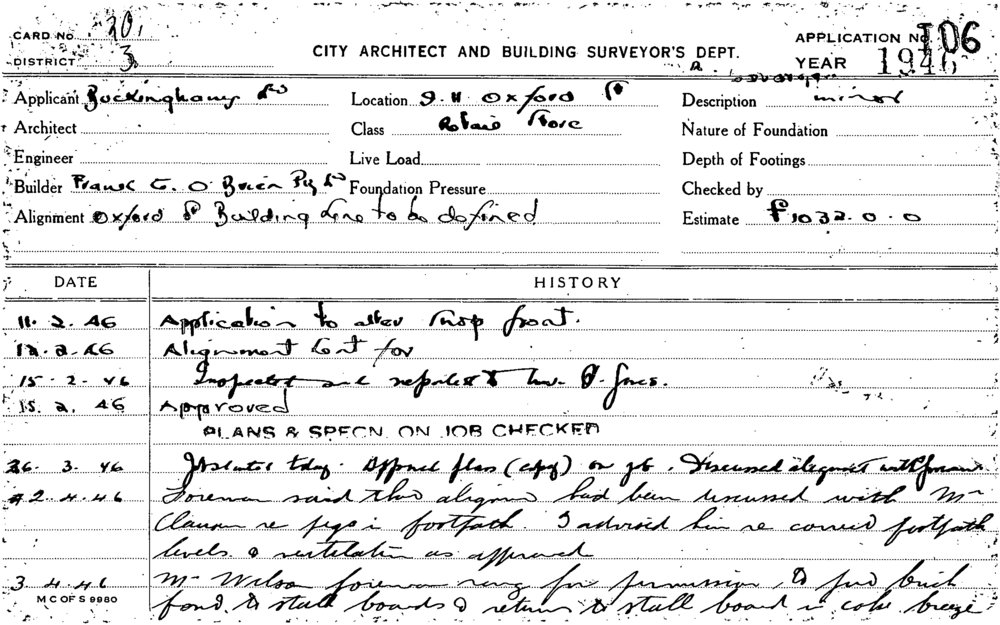 CARD No 20.
DISTRICT 3
CITY ARCHITECT AND BUILDING SURVEYOR'S DEPT.
APPLICATION No. 106
YEAR 1946
Applicant Buckinghams Ld
Location Oxford St
Description minor
Architect
Class Retail Store
Nature of Foundation
Engineer
Live Load
Depth of Footings
Builder Frank G. O'Brien Pty Ld
Foundation Pressure
Checked by
Alignment Oxford St Building Line to be defined
Estimate £1032.0.0
DATE
HISTORY
11. 2. 46 Application to alter shop front.
12. 2. 46 Alignment sent for
15. 2. 46 Inspected and reported to Mr. Jones.
15. 2. 46 Approved
PLANS & SPECN. ON JOB CHECKED
26. 3. 46 Job started today. Approved plan (copy) on job. Discussed alignment with foreman
2. 4. 46 Foreman said the alignm had been discussed with Mr
re pegs in footpath. I advised him re correct footpath
levels & ventilation as approved
3. 4. 46 Mr Wilson foreman rang for permission to find brick
to stall boards & return to stall board in coke breeze
M C OF S 9980